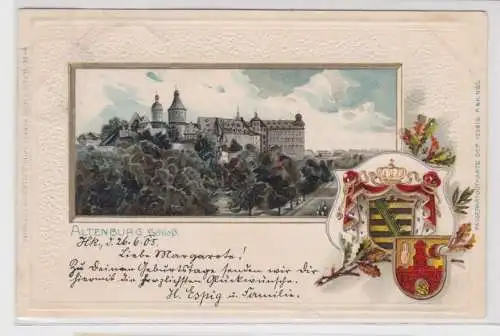 ALTENBURG Schloß.
Hk, d. 26.6.05.
Liebe Margarete!
Zu Deinem Geburtstage senden wir Dir
hiermit die herzlichsten Glückwünsche.
H. Espig u. Familie.